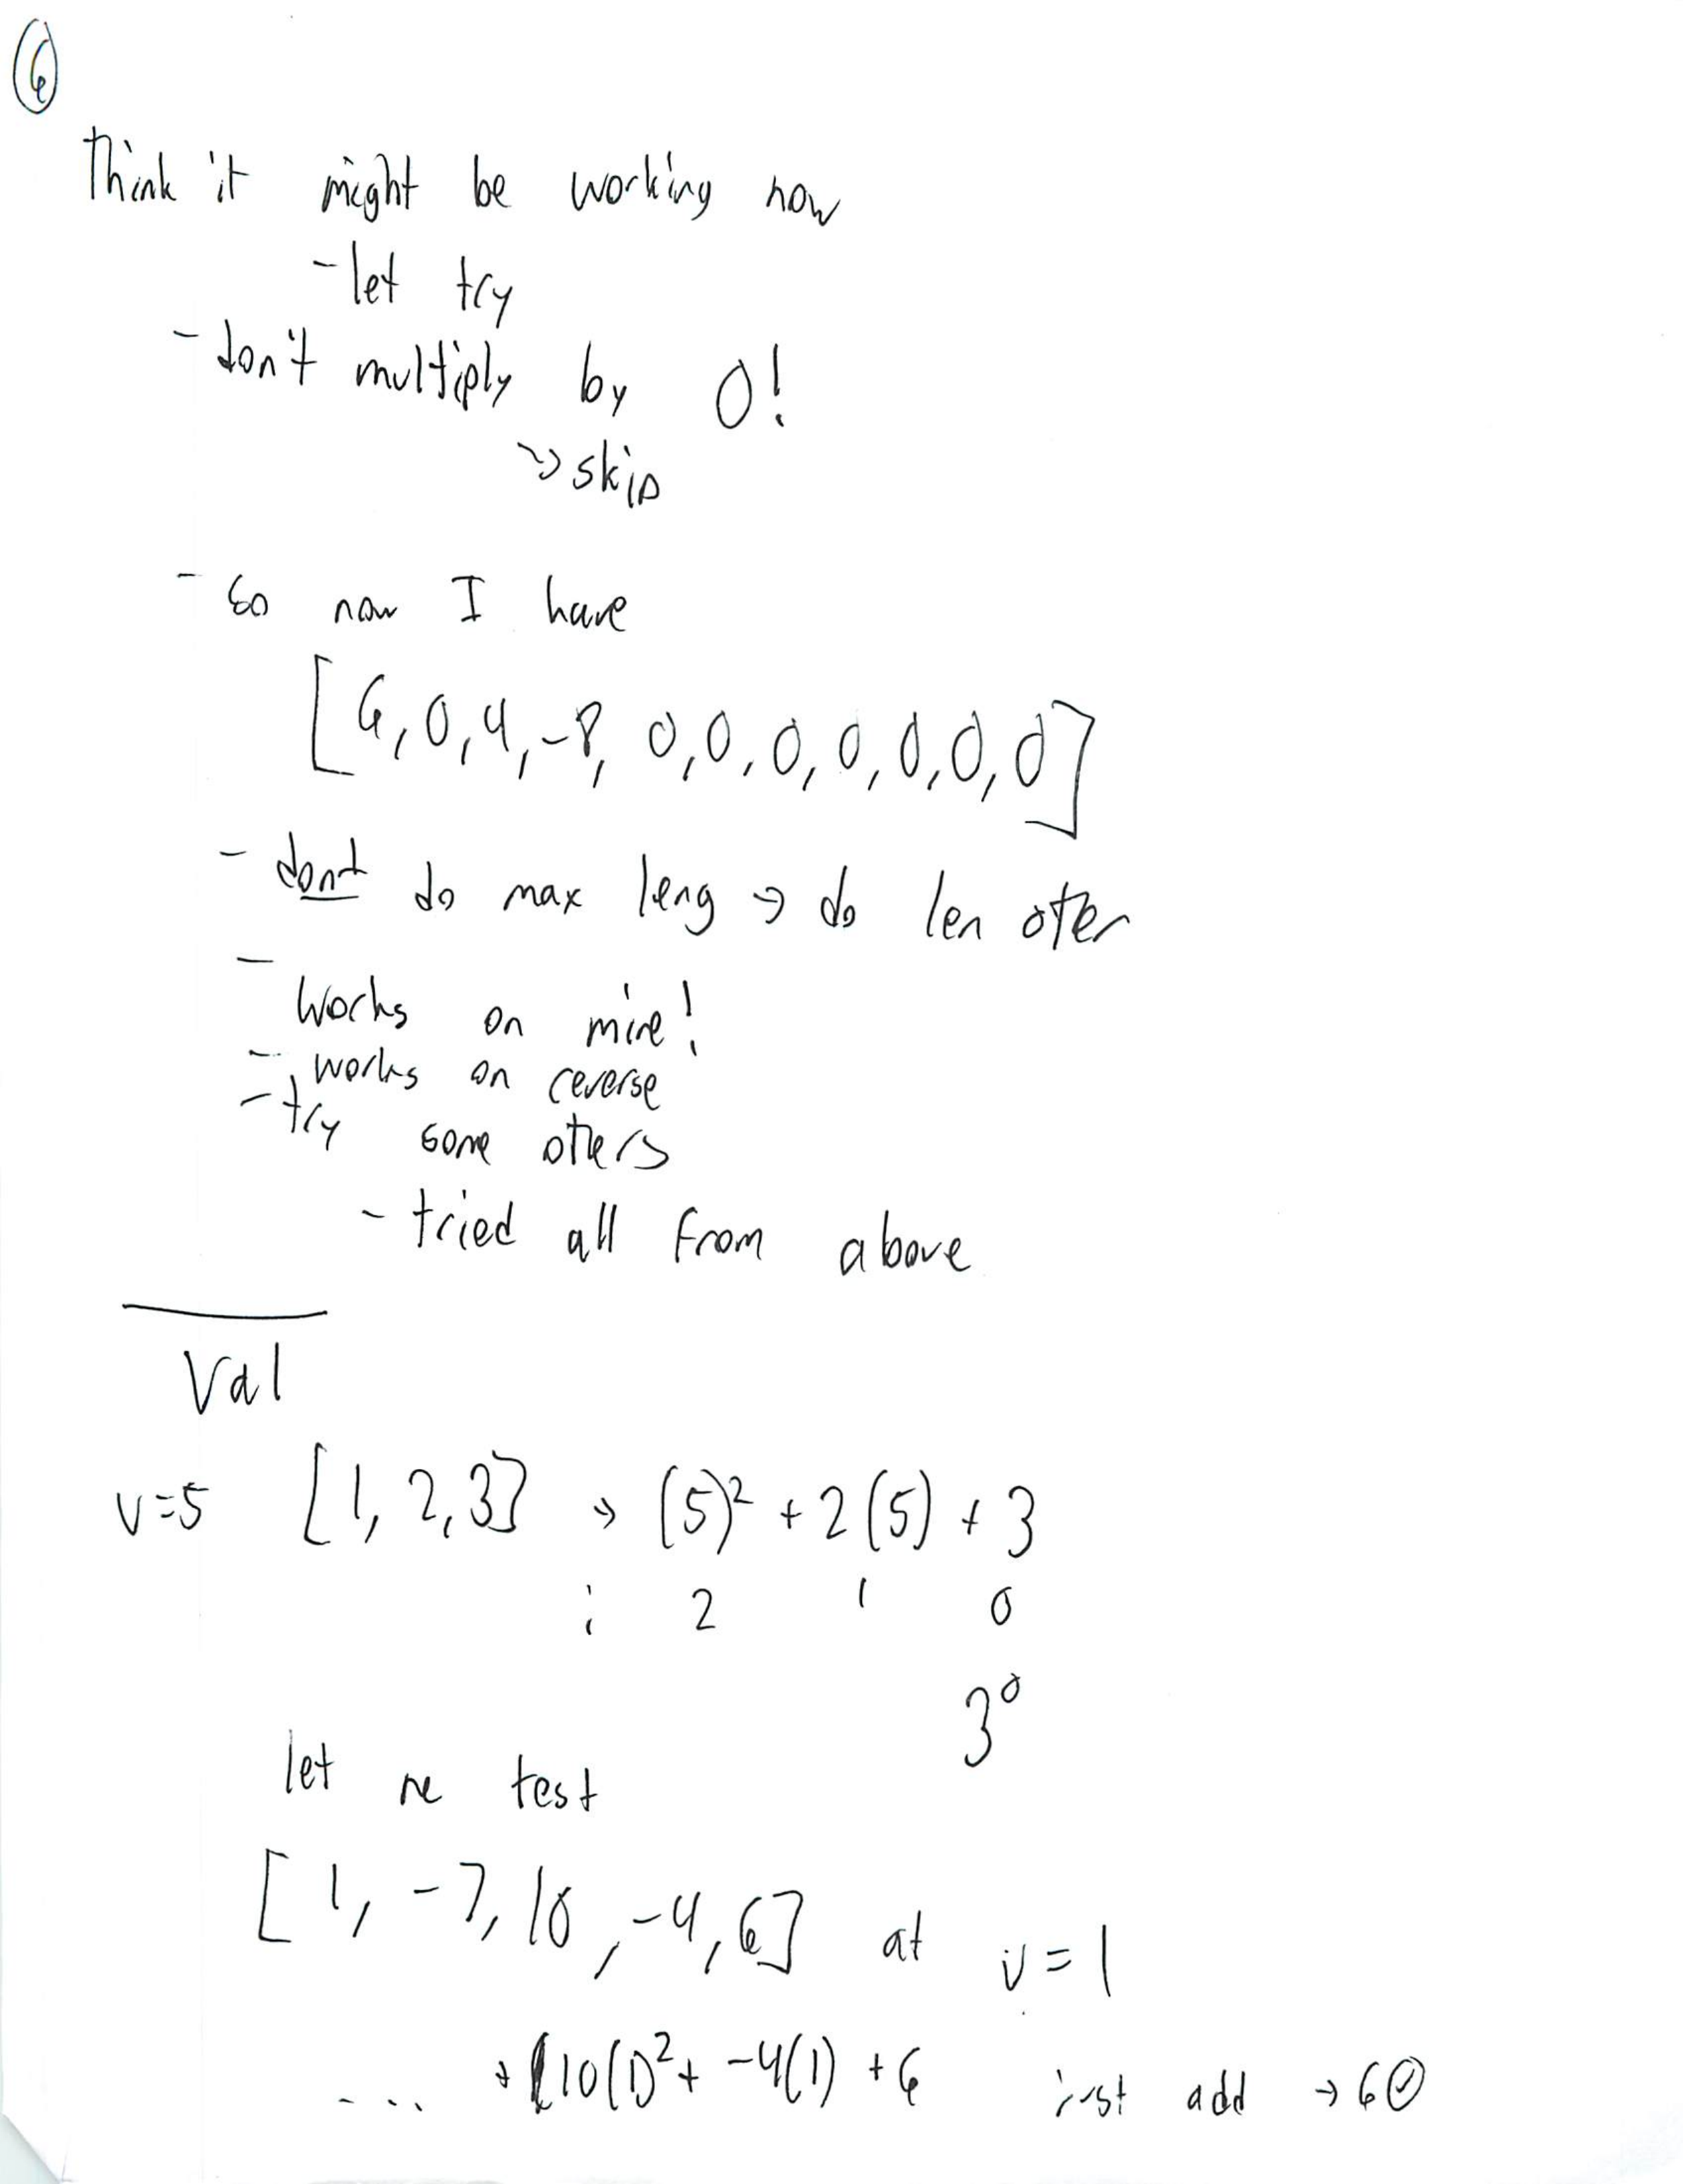 6
Think it might be working now
- let try
- don't multiply by 0!
→ skip
- so now I have
[6, 0, 4, -8, 0, 0, 0, 0, 0, 0, 0]
- dont do max leng → do len oter
-
Works on mine!
- works on reverse
- try some others
- tried all from above
Val
v=5 [1, 2, 3] → (5)² + 2(5) + 3
i 2 1 0
3⁰
let me test
[1, -7, 10, -4, 6] at v=1
.... + 10(1)² + -4(1) + 6 just add → 6 ✓